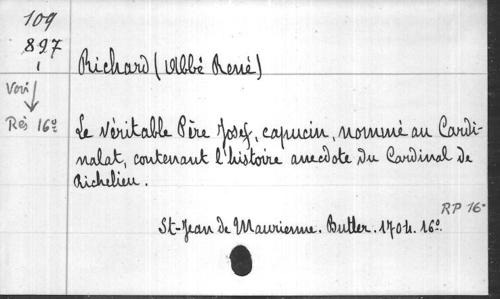 109
897
1
Richard (Abbé René)
Voir
Rés 16º
Le Véritable Père Josef, capucin, nommé au Cardi-
nalat, contenant l'histoire anecdote du Cardinal de
Richelieu.
RP 16º
St-Jean de Maurienne. Butler. 1704. 16º.